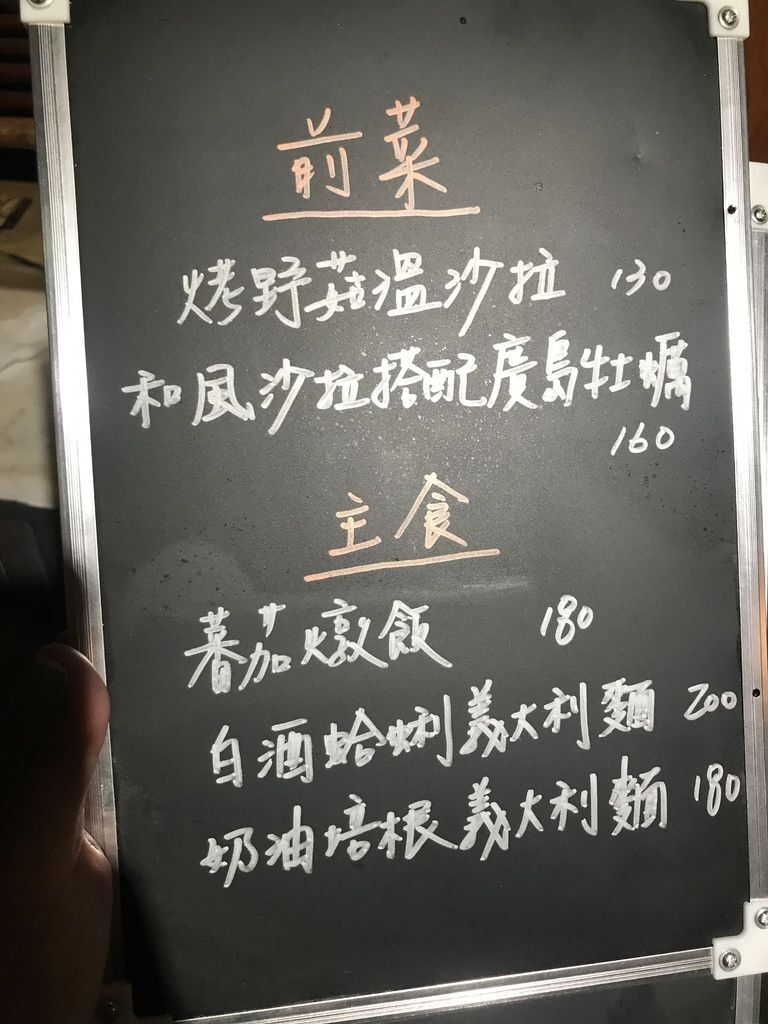 前菜
烤野菇溫沙拉 130
和風沙拉搭配廣島牡蠣
160
主食
蕃茄燉飯 180
白酒蛤蜊義大利麵 200
奶油培根義大利麵 180